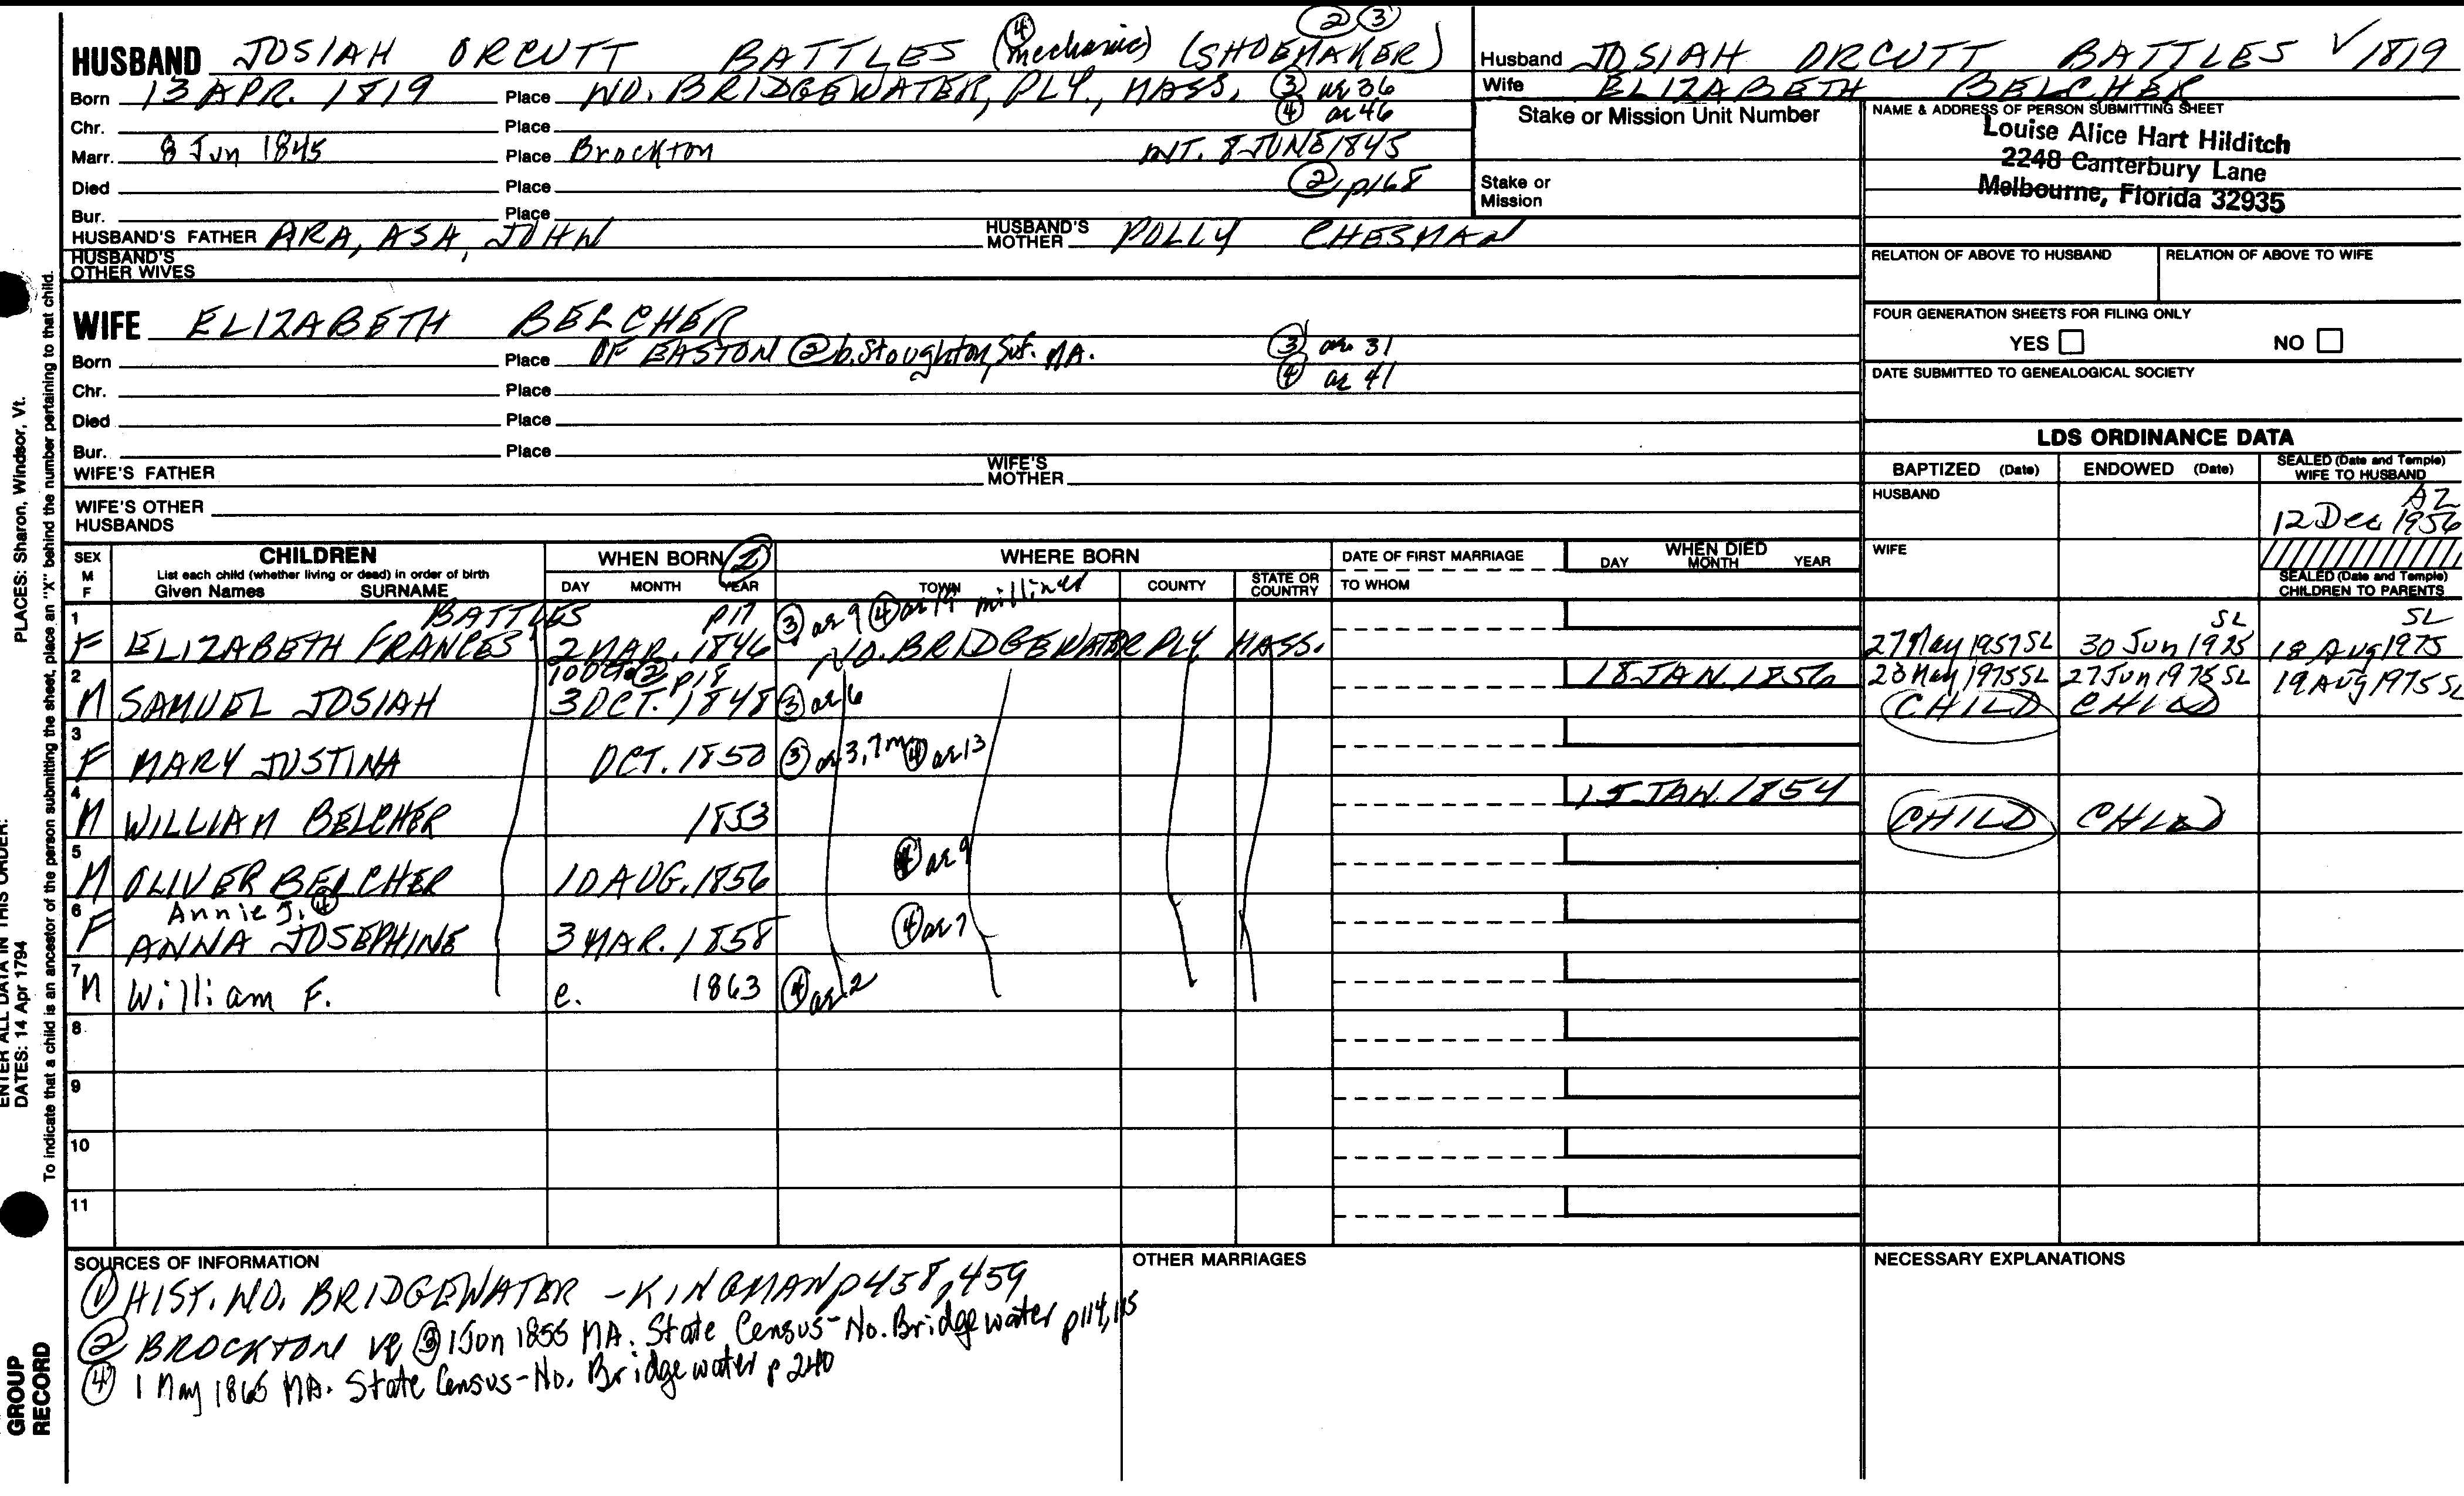 ② ③
④
HUSBAND JOSIAH ORCUTT BATTLES (mechanic) (SHOEMAKER)
Born 13 APR. 1819 Place NO. BRIDGEWATER, PLY., MASS. ③ ae 36
Chr. Place ④ ae 46
Marr. 8 Jun 1845 Place Brockton INT. 8 JUNE 1845
Died Place ② p168
Bur. Place
HUSBAND'S FATHER ARA, ASA, JOHN HUSBAND'S MOTHER POLLY CHESMAN
HUSBAND'S OTHER WIVES
WIFE ELIZABETH BELCHER
Born Place OF EASTON ② b. Stoughton, Suf. MA. ③ ae 31
Chr. Place ④ ae 41
Died Place
Bur. Place
WIFE'S FATHER WIFE'S MOTHER
WIFE'S OTHER HUSBANDS
Husband JOSIAH ORCUTT BATTLES √ 1819
Wife ELIZABETH BELCHER
Stake or Mission Unit Number
Stake or Mission
NAME & ADDRESS OF PERSON SUBMITTING SHEET
Louise Alice Hart Hilditch
2248 Canterbury Lane
Melbourne, Florida 32935
RELATION OF ABOVE TO HUSBAND RELATION OF ABOVE TO WIFE
FOUR GENERATION SHEETS FOR FILING ONLY
YES NO
DATE SUBMITTED TO GENEALOGICAL SOCIETY
LDS ORDINANCE DATA
BAPTIZED (Date) ENDOWED (Date) SEALED (Date and Temple) WIFE TO HUSBAND
HUSBAND AZ
12 Dec 1956
WIFE
SEALED (Date and Temple) CHILDREN TO PARENTS
SEX M F CHILDREN WHEN BORN ② WHERE BORN DATE OF FIRST MARRIAGE WHEN DIED
List each child (whether living or dead) in order of birth
Given Names SURNAME DAY MONTH YEAR TOWN COUNTY STATE OR COUNTRY TO WHOM DAY MONTH YEAR
BATTLES p17 ③ ae 9 ④ ae 19 milliner SL SL
1 F ELIZABETH FRANCES 2 MAR. 1846 NO. BRIDGEWATER PLY MASS. 27 May 1957 SL 30 Jun 1975 18 Aug 1975
10 Oct. ② p18 18 JAN. 1856 28 May 1975 SL 27 Jun 1975 SL 19 Aug 1975 SL
2 M SAMUEL JOSIAH 3 OCT. 1848 ③ ae 6 CHILD CHILD
3 F MARY JUSTINA OCT. 1850 ③ ae 3, 7m ④ ae 13
4 M WILLIAM BELCHER 1853 15 JAN. 1854 CHILD CHILD
5 M OLIVER BELCHER 10 AUG. 1856 ④ ae 9
Annie J. ④
6 F ANNA JOSEPHINE 3 MAR. 1858 ④ ae 7
7 M William F. c. 1863 ④ ae 2
8
9
10
11
SOURCES OF INFORMATION
① HIST. NO. BRIDGEWATER - KINGMAN p458, 459
② BROCKTON VR ③ 1 Jun 1855 MA. State Census - No. Bridgewater p114, 115
④ 1 May 1865 MA. State Census - No. Bridgewater p 240
OTHER MARRIAGES
NECESSARY EXPLANATIONS
PLACES: Sharon, Windsor, Vt.
ENTER ALL DATA IN THIS ORDER:
DATES: 14 Apr 1794
To indicate that a child is an ancestor of the person submitting the sheet, place an "X" behind the number pertaining to that child.
GROUP
RECORD